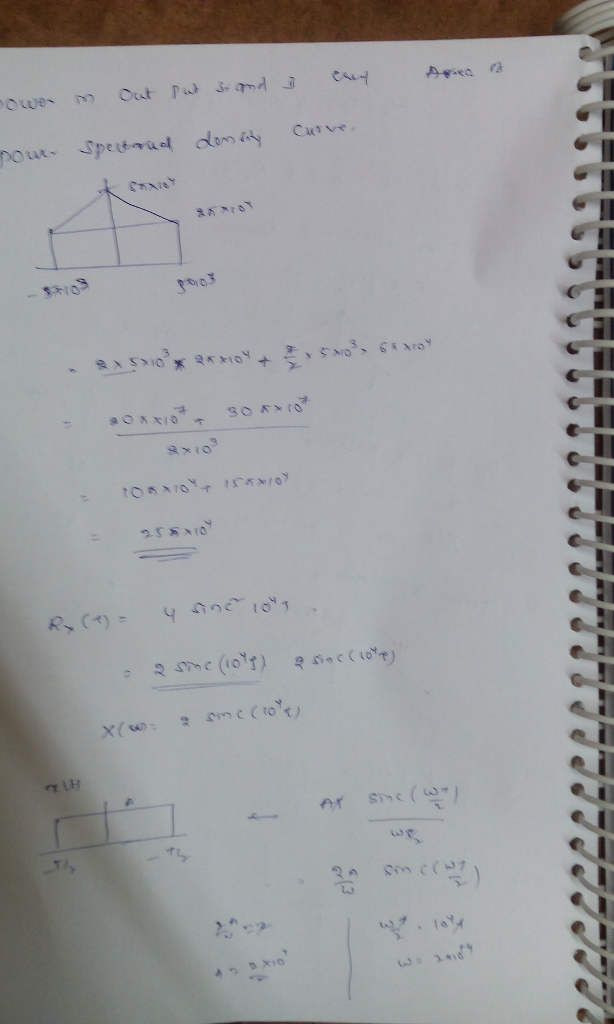 power in out put signal I
power spectral density curve.
5π×10⁴
2π×10⁴
-5×10³ 5×10³
= 2×5×10³ × 2π×10⁴ + 2/2 × 5×10³ × 6π×10⁴
= 20π×10⁷ + 30π×10⁷
2×10³
= 10π×10⁴ + 15π×10⁴
= 25π×10⁴
Rx(τ) = 4 sinc² 10⁴τ.
= 2 sinc(10⁴τ) 2 sinc(10⁴τ)
X(ω)= 2 sinc(10⁴τ)
x(t)
A
-T/2 -T/2
← Aτ sinc(ωτ/2)
ωτ/2
2A/ω sinc(ωτ/2)
2A/ω = 2
ωτ/2 = 10⁴τ
ω = 2×10⁴